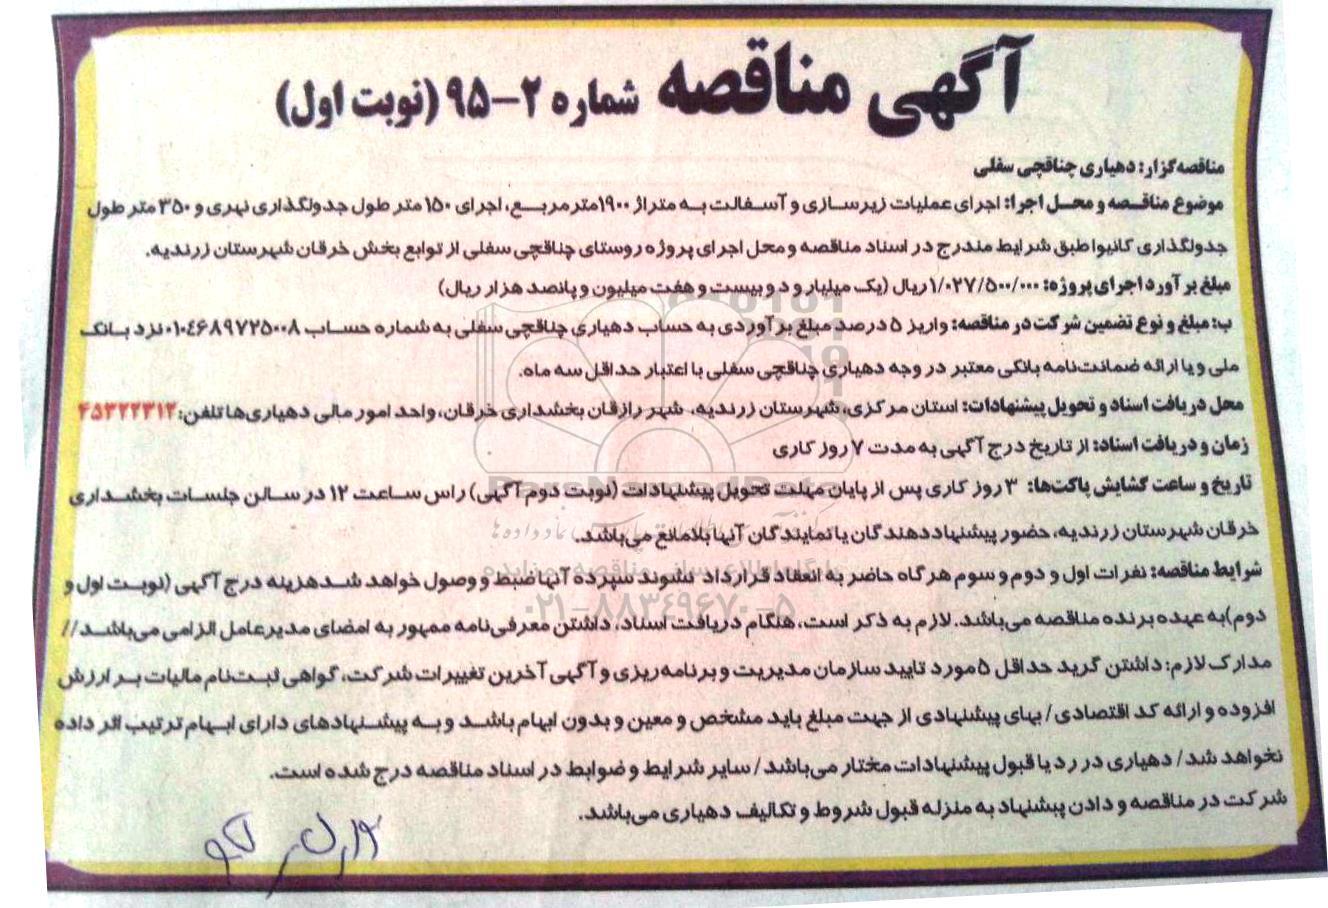 آگهی مناقصه شماره ۲-۹۵ (نوبت اول)
مناقصه‌گزار: دهیاری چناقچی سفلی
موضوع مناقصه و محل اجرا: اجرای عملیات زیرسازی و آسفالت به متراژ ۱۹۰۰مترمربع، اجرای ۱۵۰ متر طول جدولگذاری نهری و ۳۵۰ متر طول
جدولگذاری کانیوا طبق شرایط مندرج در اسناد مناقصه و محل اجرای پروژه روستای چناقچی سفلی از توابع بخش خرقان شهرستان زرندیه.
مبلغ برآورد اجرای پروژه: ۱/۰۲۷/۵۰۰/۰۰۰ریال (یک میلیارد و دوبیست و هفت میلیون و پانصد هزار ریال)
ب: مبلغ و نوع تضمین شرکت در مناقصه: واریز ۵ درصد مبلغ برآوردی به حساب دهیاری چناقچی سفلی به شماره حساب ۰۱۰۴۶۸۹۷۲۵۰۰۸ نزد بانک
ملی و یا ارائه ضمانت‌نامه بانکی معتبر در وجه دهیاری چناقچی سفلی با اعتبار حداقل سه ماه.
محل دریافت اسناد و تحویل پیشنهادات: استان مرکزی، شهرستان زرندیه، شهر رازقان بخشداری خرقان، واحد امور مالی دهیاری‌ها تلفن: ۴۵۳۲۲۳۱۲
زمان و دریافت اسناد: از تاریخ درج آگهی به مدت ۷ روز کاری
تاریخ و ساعت گشایش پاکت‌ها: ۳ روز کاری پس از پایان مهلت تحویل پیشنهادات (نوبت دوم آگهی) راس ساعت ۱۲ در سالن جلسات بخشداری
خرقان شهرستان زرندیه، حضور پیشنهاددهندگان یا نمایندگان آنها بلامانع می‌باشد.
شرایط مناقصه: نفرات اول و دوم و سوم هرگاه حاضر به انعقاد قرارداد نشوند سپرده آنها ضبط و وصول خواهد شد هزینه درج آگهی (نوبت اول و
دوم)به عهده برنده مناقصه می‌باشد. لازم به ذکر است، هنگام دریافت اسناد، داشتن معرفی‌نامه ممهور به امضای مدیرعامل الزامی می‌باشد//
مدارک لازم: داشتن گرید حداقل ۵ مورد تایید سازمان مدیریت و برنامه‌ریزی و آگهی آخرین تغییرات شرکت، گواهی ثبت‌نام مالیات بر ارزش
افزوده و ارائه کد اقتصادی/ بهای پیشنهادی از جهت مبلغ باید مشخص و معین و بدون ابهام باشد و به پیشنهادهای دارای ابهام ترتیب اثر داده
نخواهد شد/ دهیاری در رد یا قبول پیشنهادات مختار می‌باشد/ سایر شرایط و ضوابط در اسناد مناقصه درج شده است.
شرکت در مناقصه و دادن پیشنهاد به منزله قبول شروط و تکالیف دهیاری می‌باشد.
ParsNamadData
پایگاه اطلاع رسانی مناقصه و مزایده
۰۲۱-۸۸۳۴۹۶۷۰-۵